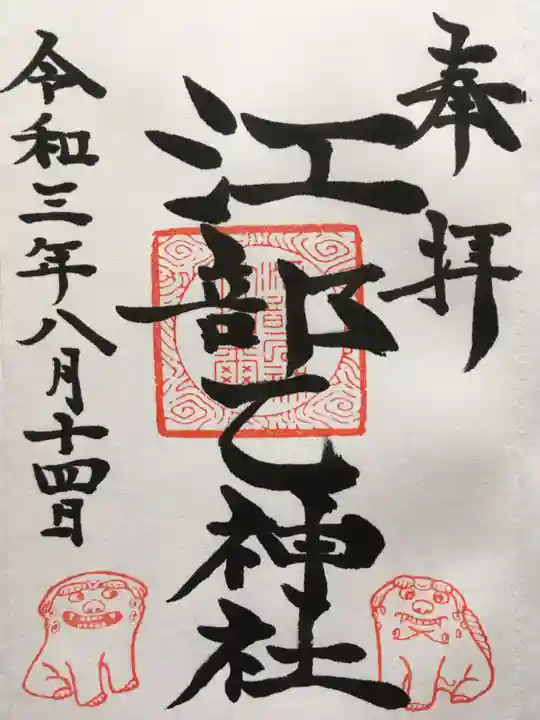 奉拝
江部乙神社
令和三年八月十四日